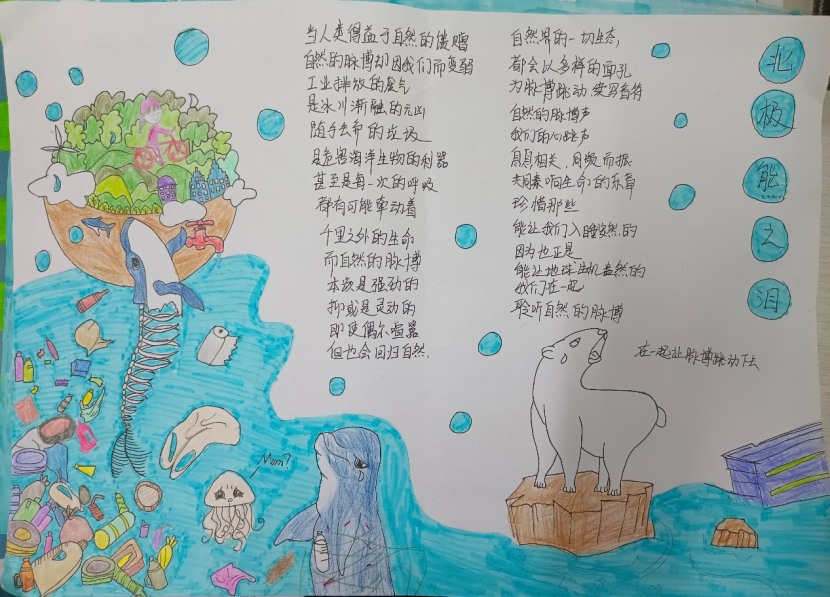 当人类得益于自然的馈赠
自然的脉搏却因我们而变弱
工业排放的废气
是冰川渐融的元凶
随手丢弃的垃圾
是危害海洋生物的利器
甚至是每一次的呼吸
都有可能牵动着
千里之外的生命
而自然的脉搏
本该是强劲的
抑或是灵动的
即使偶尔喧嚣
但也会回归自然.
自然界的一切生态,
都会以多样的面孔
为脉搏跳动、续写音符
自然的脉搏声
我们的心跳声
息息相关、同频而振
共同奏响生命的乐章
珍惜那些
能让我们入睡安然的
因为也正是
能让地球生机盎然的
我们在一起
聆听自然的脉搏
在一起让脉搏跳动下去
北极能之泪
Mom?